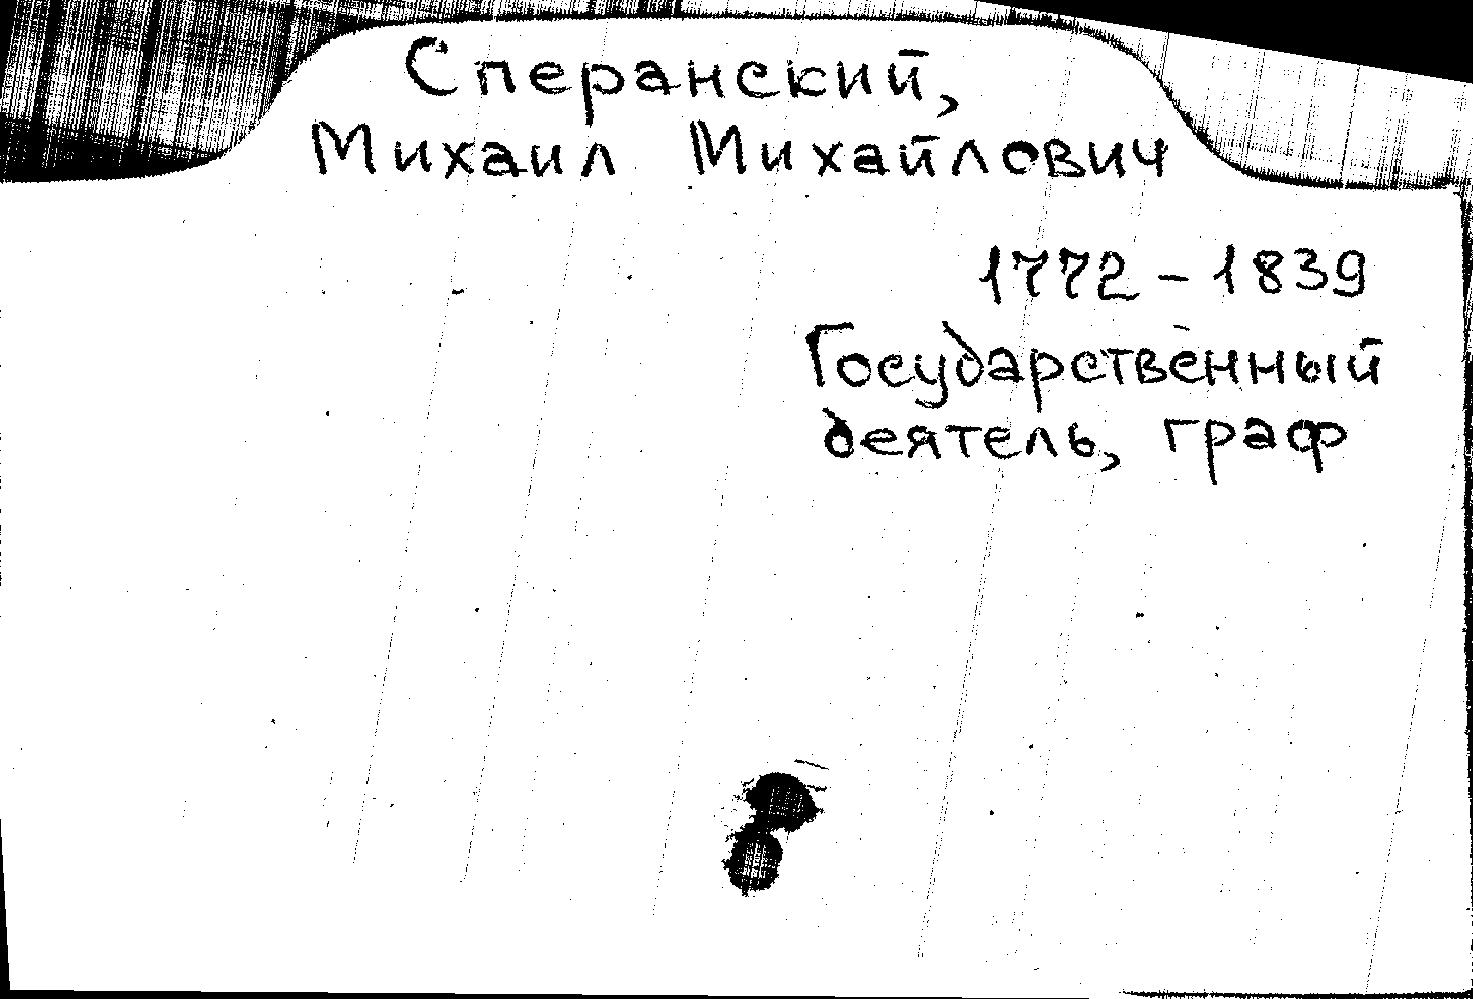 Сперанский,
Михаил Михайлович
1772 - 1839
Государственный
деятель, граф